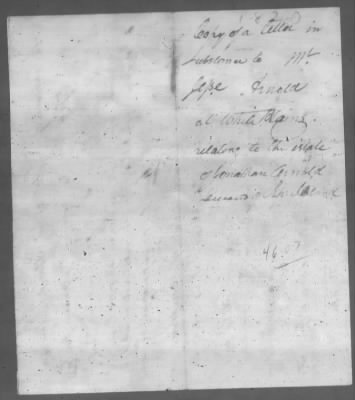 Copy of a Letter in
substance to Mr
Jesse Arnold
at White Plains
relating to the
of Jonathan Arnold

46.